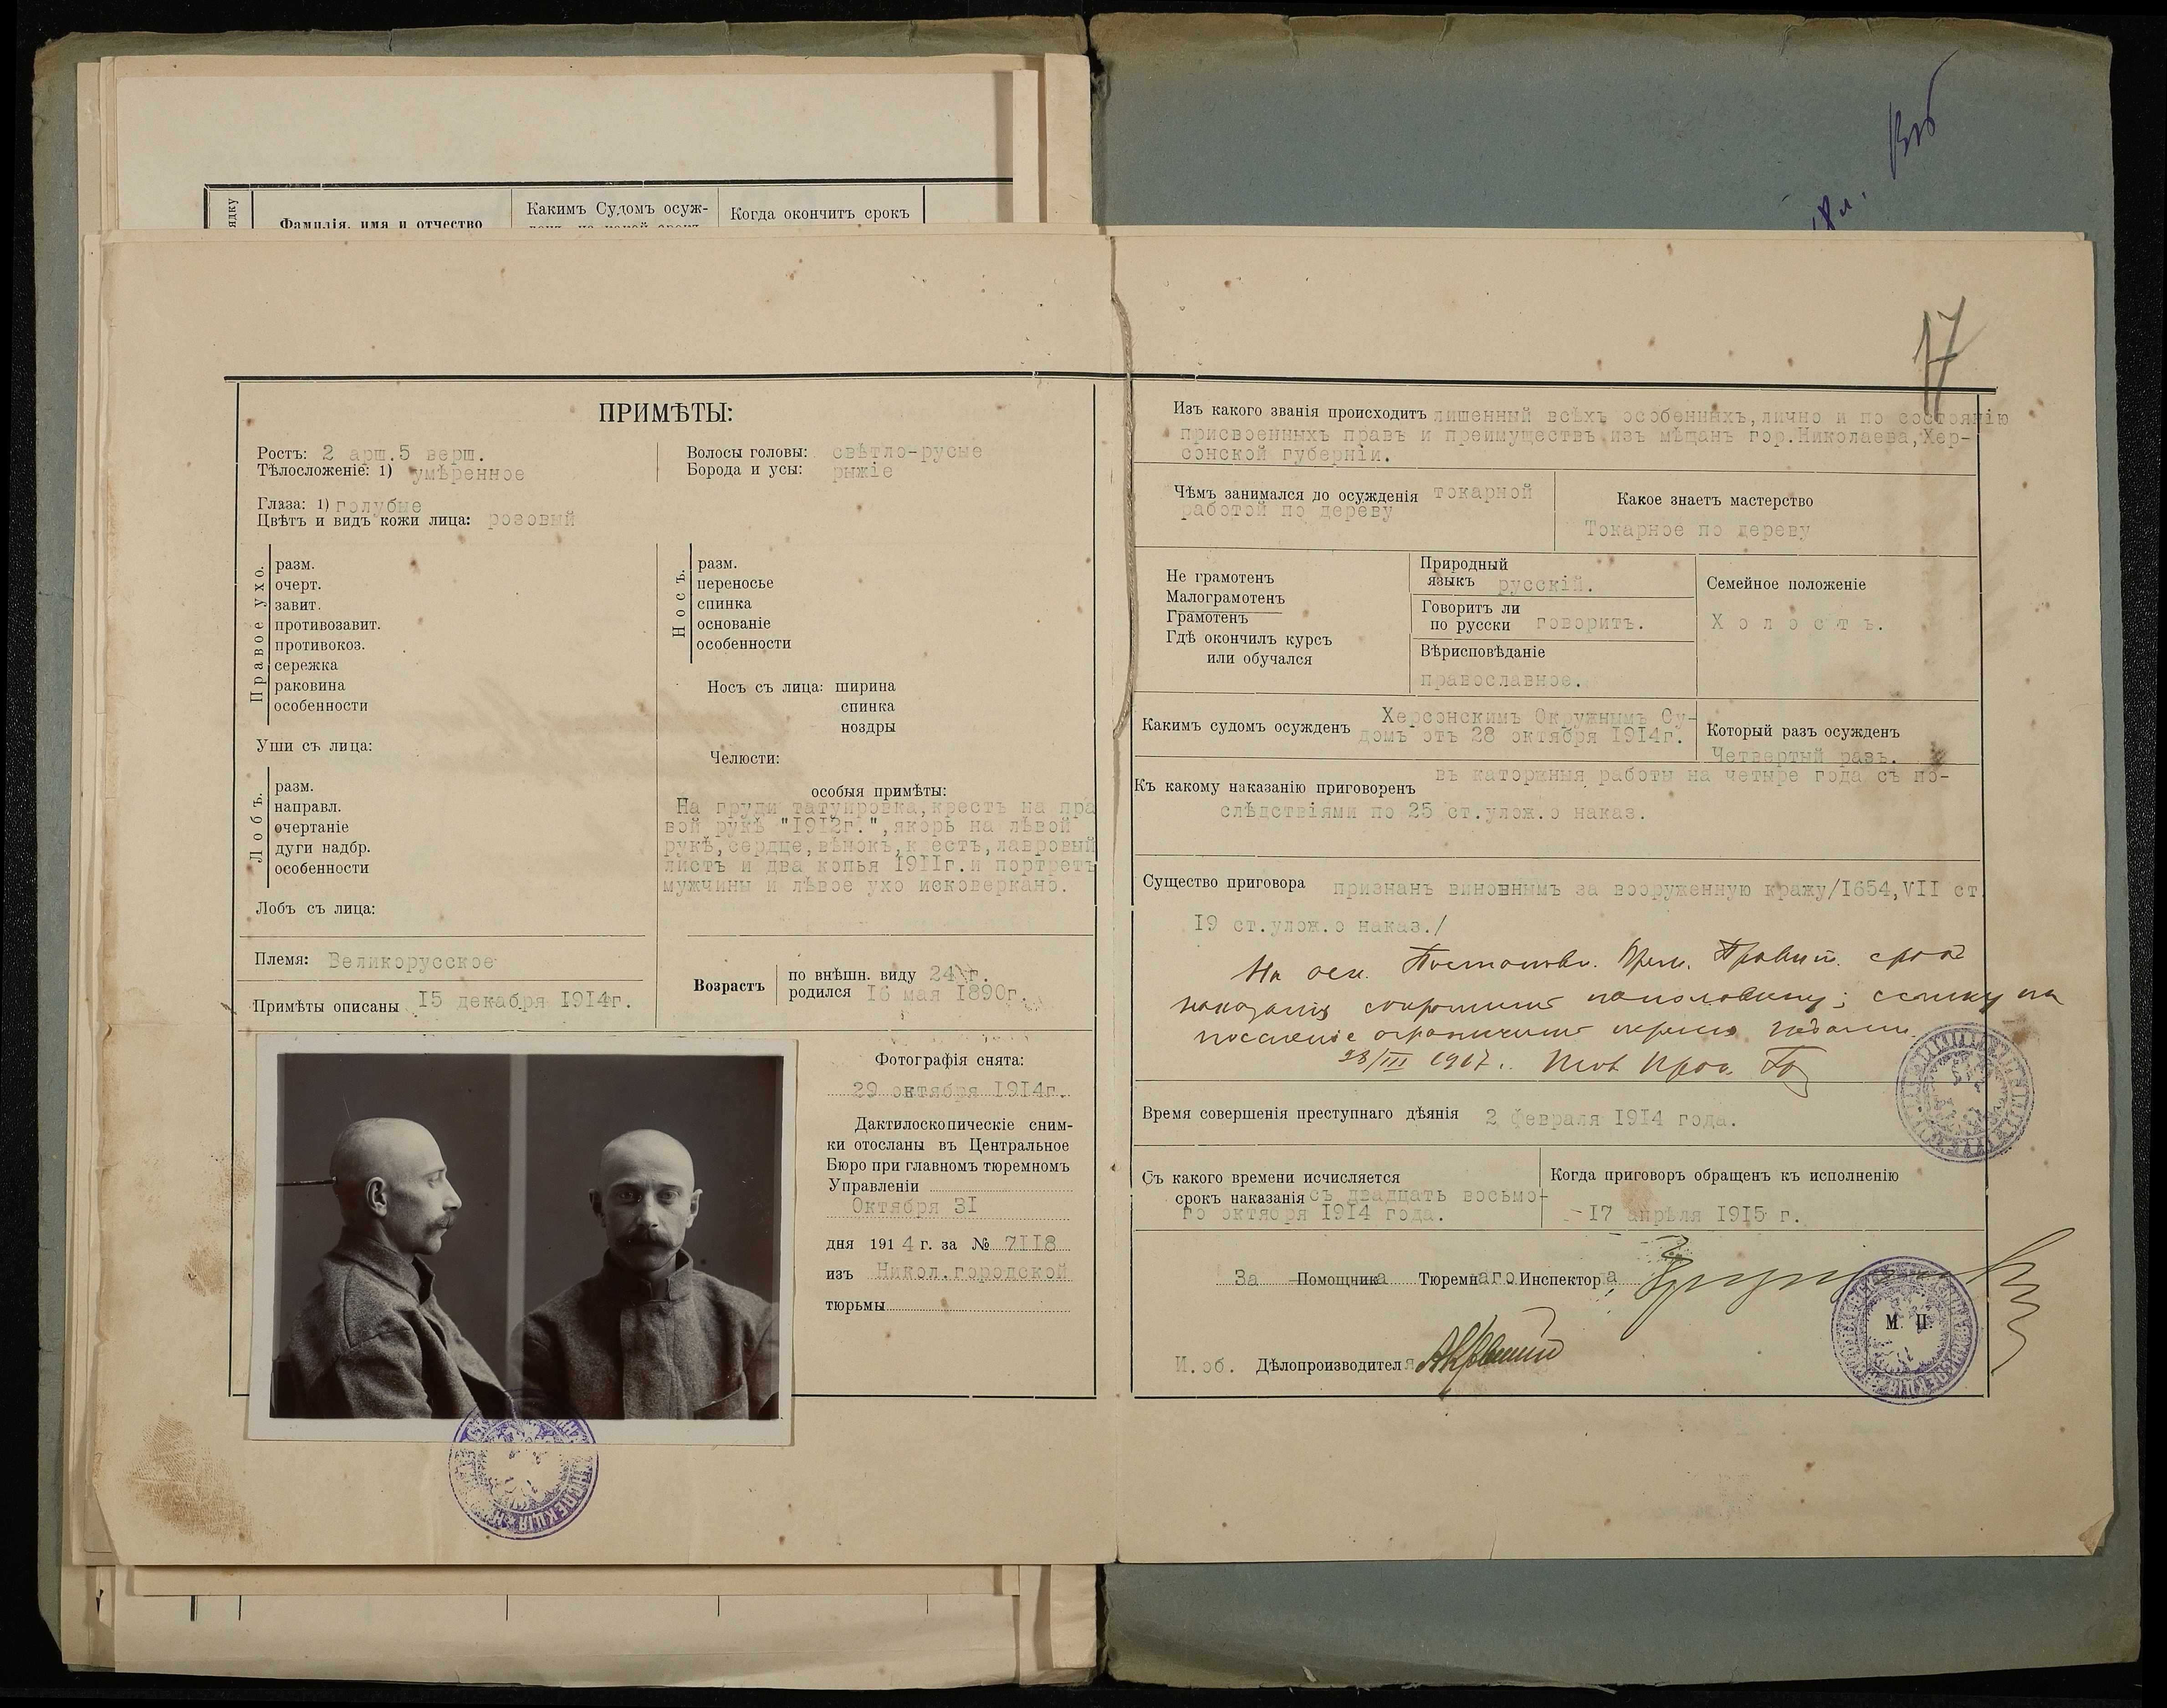 ядку
Фамилія, имя и отчество
Какимъ Судомъ осуж-
Когда окончитъ срокъ
17
ПРИМѢТЫ:
Ростъ: 2 арш.5 верш.
Тѣлосложеніе: 1) умѣренное
Глаза: 1) голубые
Цвѣтъ и видъ кожи лица: розовый
Волосы головы: свѣтло-русые
Борода и усы: рыжіе
Правое ухо.
разм.
очерт.
завит.
противозавит.
противокоз.
сережка
раковина
особенности
Уши съ лица:
Лобъ.
разм.
направл.
очертаніе
дуги надбр.
особенности
Лобъ съ лица:
Носъ.
разм.
переносье
спинка
основаніе
особенности
Носъ съ лица: ширина
спинка
ноздры
Челюсти:
особыя примѣты:
На груди татуировка,крестъ на пра
вой рукѣ "1912г.",якорь на лѣвой
рукѣ,сердце,вѣнокъ,крестъ,лавровый
листъ и два копья 1911г.и портретъ
мужчины и лѣвое ухо исковеркано.
Племя: Великорусское
Примѣты описаны 15 декабря 1914г.
Возрастъ
по внѣшн. виду 24 г.
родился 16 мая 1890г.
Фотографія снята:
29 октября 1914г.
Дактилоскопическіе сним-
ки отосланы въ Центральное
Бюро при главномъ тюремномъ
Управленіи
Октября 31
дня 1914 г. за № 7118
изъ Никол.городской
тюрьмы
Изъ какого званія происходитъ лишенный всѣхъ особенныхъ,лично и по состоянію
присвоенныхъ правъ и преимуществъ изъ мѣщанъ гор.Николаева,Хер-
сонской губерніи.
Чѣмъ занимался до осужденія токарной
работой по дереву
Какое знаетъ мастерство
Токарное по дереву
Не грамотенъ
Малограмотенъ
Грамотенъ
Гдѣ окончилъ курсъ
или обучался
Природный
языкъ русскій.
Говоритъ ли
по русски говоритъ.
Вѣрисповѣданіе
православное.
Семейное положеніе
Холостъ.
Какимъ судомъ осужденъ Херсонскимъ Окружнымъ Су-
домъ отъ 28 октября 1914г.
Который разъ осужденъ
Четвертый разъ.
Къ какому наказанію приговоренъ въ каторжныя работы на четыре года съ по-
слѣдствіями по 25 ст.улож.о наказ.
Существо приговора признанъ виновнымъ за вооруженную кражу/1654,VII ст.
19 ст.улож.о наказ./
На осн. Постановл. Врем. Правит. срокъ
наказанія сокращенъ наполовину; ссылку на
поселеніе ограничить
28/III 1917.
Время совершенія преступнаго дѣянія 2 февраля 1914 года.
Съ какого времени исчисляется
срокъ наказанія съ двадцать восьмо-
го октября 1914 года.
Когда приговоръ обращенъ къ исполненію
-17 апрѣля 1915 г.
За Помощника Тюремнаго Инспектора
М. П.
И.об. Дѣлопроизводителя